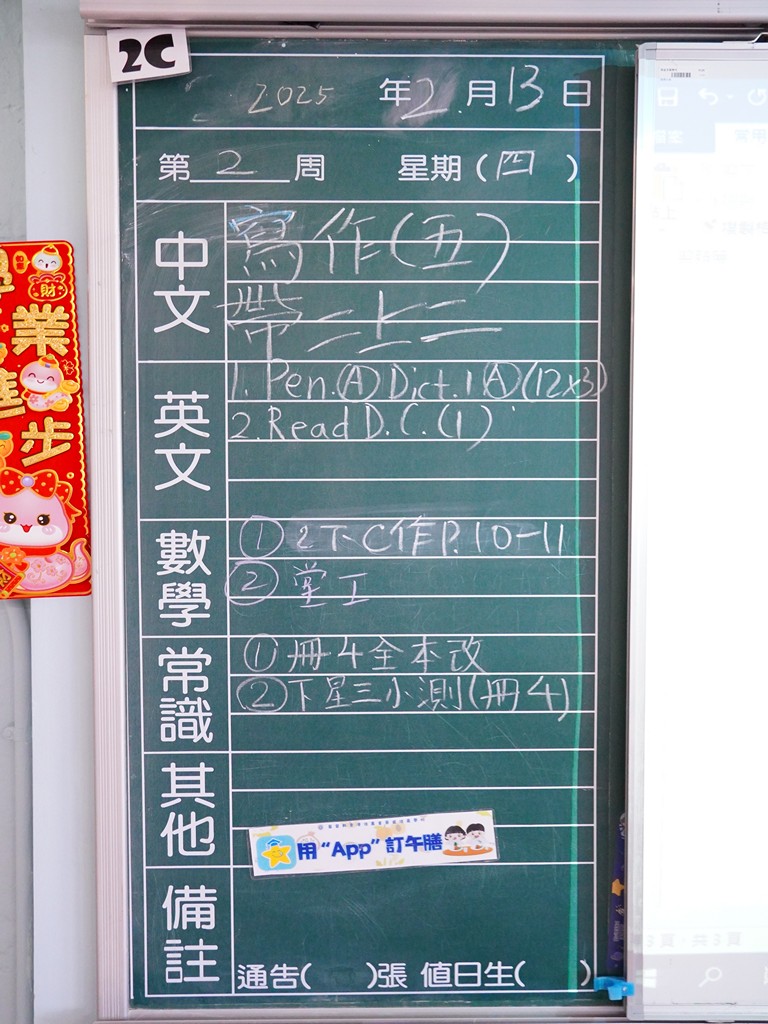 2C
2025 年 2 月 13 日
第 2 周 星期(四)
中文
寫作(五)
帶二上二
英文
1. Pen.Ⓐ Dict.1 Ⓐ(12x3)
2. Read D.C.(1)
數學
① 2下C作P.10-11
② 堂工
常識
① 冊4全本改
② 下星三小測(冊4)
其他
用“App”訂午膳
備註
通告( )張 值日生( )
業
進步
財
第3頁，共3頁